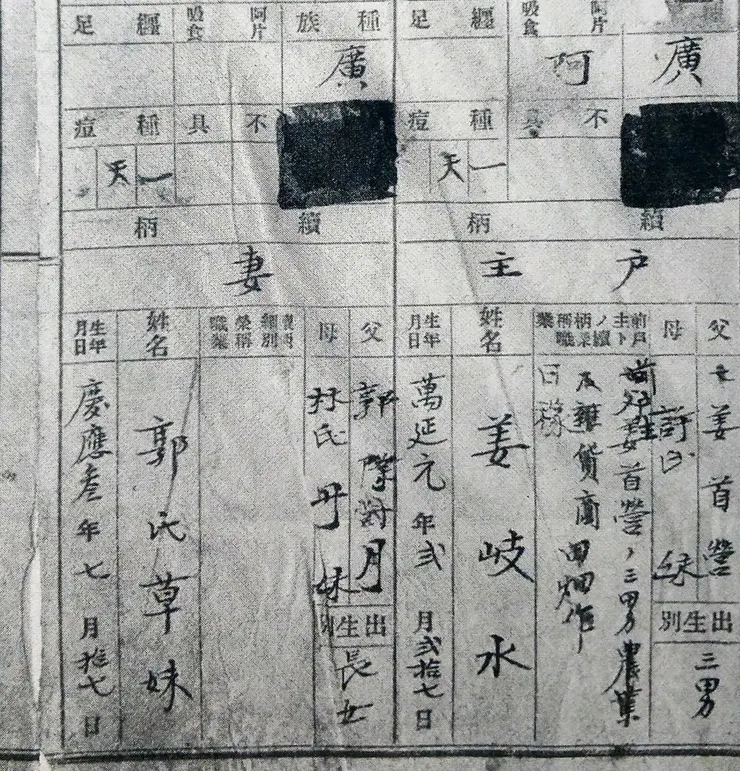 種族
廣
阿片吸食
阿
纏足
不具
種痘
一天
續柄
戶主
父
姜首營
母
許氏
妹
出生別
三男
姜首營ノ三男農業
及雜貨商田畑作
日稼
姓名
姜岐水
生年月日
萬延元年弐月弐拾七日
種族
廣
阿片吸食
纏足
不具
種痘
一天
續柄
妻
父
郭
母
林氏丹妹
出生別
長女
職業
姓名
郭氏草妹
生年月日
慶應叁年七月拾七日